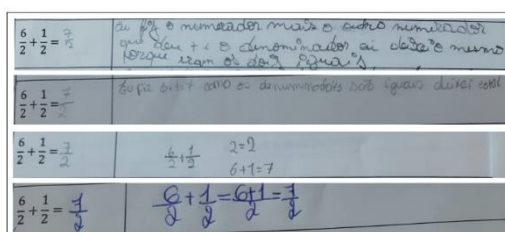 6/2 + 1/2 = 7/2
eu fiz o numerador mais o outro numerador
que deu 7 e o denominador ai deixei o mesmo
porque eram os dois iguais.
6/2 + 1/2 = 7/2
Eu fiz como os denominadores são iguais deixei
6/2 + 1/2 = 7/2
6/2 + 1/2
2=2
6+1=7
6/2 + 1/2 = 7/2
6/2 + 1/2 = 6+1/2 = 7/2